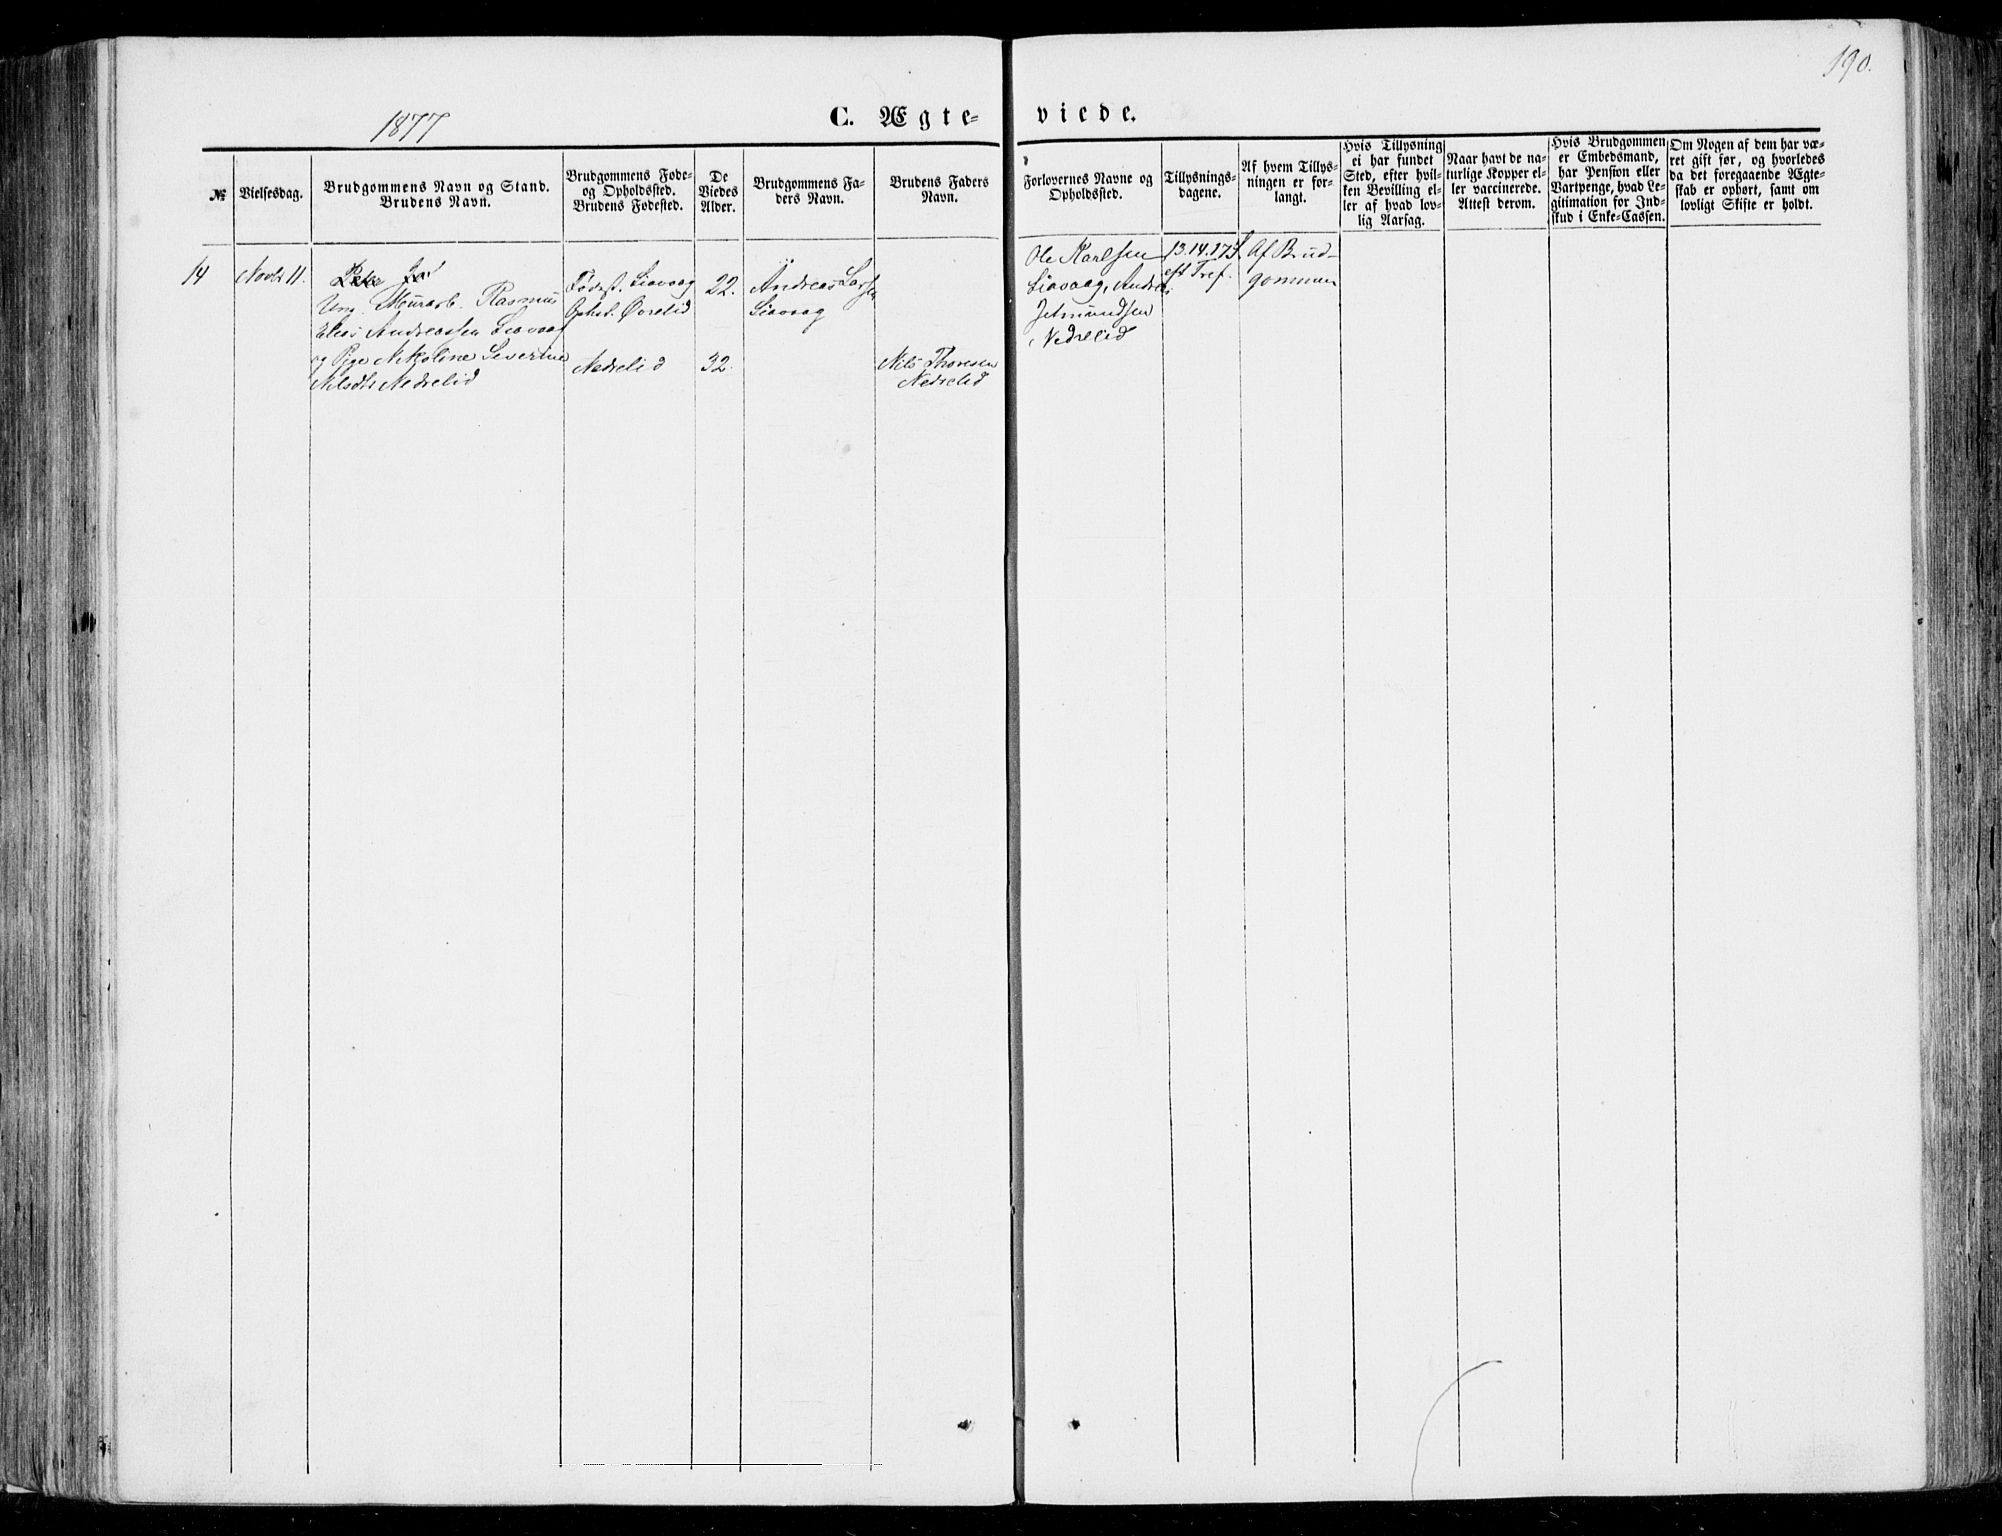 190.
1877
C. Ægte-
viede.
№
Vielsesdag.
Brudgommens Navn og Stand.
Brudens Navn.
Brudgommens Føde-
og Opholdssted.
Brudens Fødested.
De
Viedes
Alder.
Brudgommens Fa-
ders Navn.
Brudens Faders
Navn.
Forlovernes Navne og
Opholdssted.
Tillysnings-
dagene.
Af hvem Tillys-
ningen er for-
langt.
Hvis Tillysning
ei har fundet
Sted, efter hvil-
ken Bevilling el-
ler af hvad lov-
lig Aarsag.
Naar havt de na-
turlige Kopper el-
ler vaccinerede.
Attest derom.
Hvis Brudgommen
er Embedsmand,
har Pension eller
Vartpenge, hvad Le-
gitimation for Ind-
skud i Enke-Cassen.
Om Nogen af dem har væ-
ret gift før, og hvorledes
da det foregaaende Ægte-
skab er ophørt, samt om
lovligt Skifte er holdt.
14
Novbr 11.
Ung. Murarb. Rasmus
Andreassen Liavaag
og Pige Nikoline Severine
Nilsdtr Nedrelid
Fødest. Liavaag
Ophst. Øvrelid
Nedrelid
22.
32.
Andreas Larsen
Liavaag
Nils Thoresen
Nedrelid
Ole Karlsen
Liavaag, Andreas
Jetmundsen
Nedrelid
13. 14. 17 S.
eft Tref.
Af Brud-
gommen